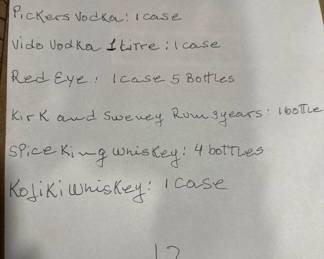 Pickers Vodka: 1 case
Vido Vodka 1 Litre: 1 case
Red Eye: 1 case 5 Bottles
Kirk and Sweney Rum 3years: 1 bottle
Spice King Whiskey: 4 bottles
Kojiki Whiskey: 1 case